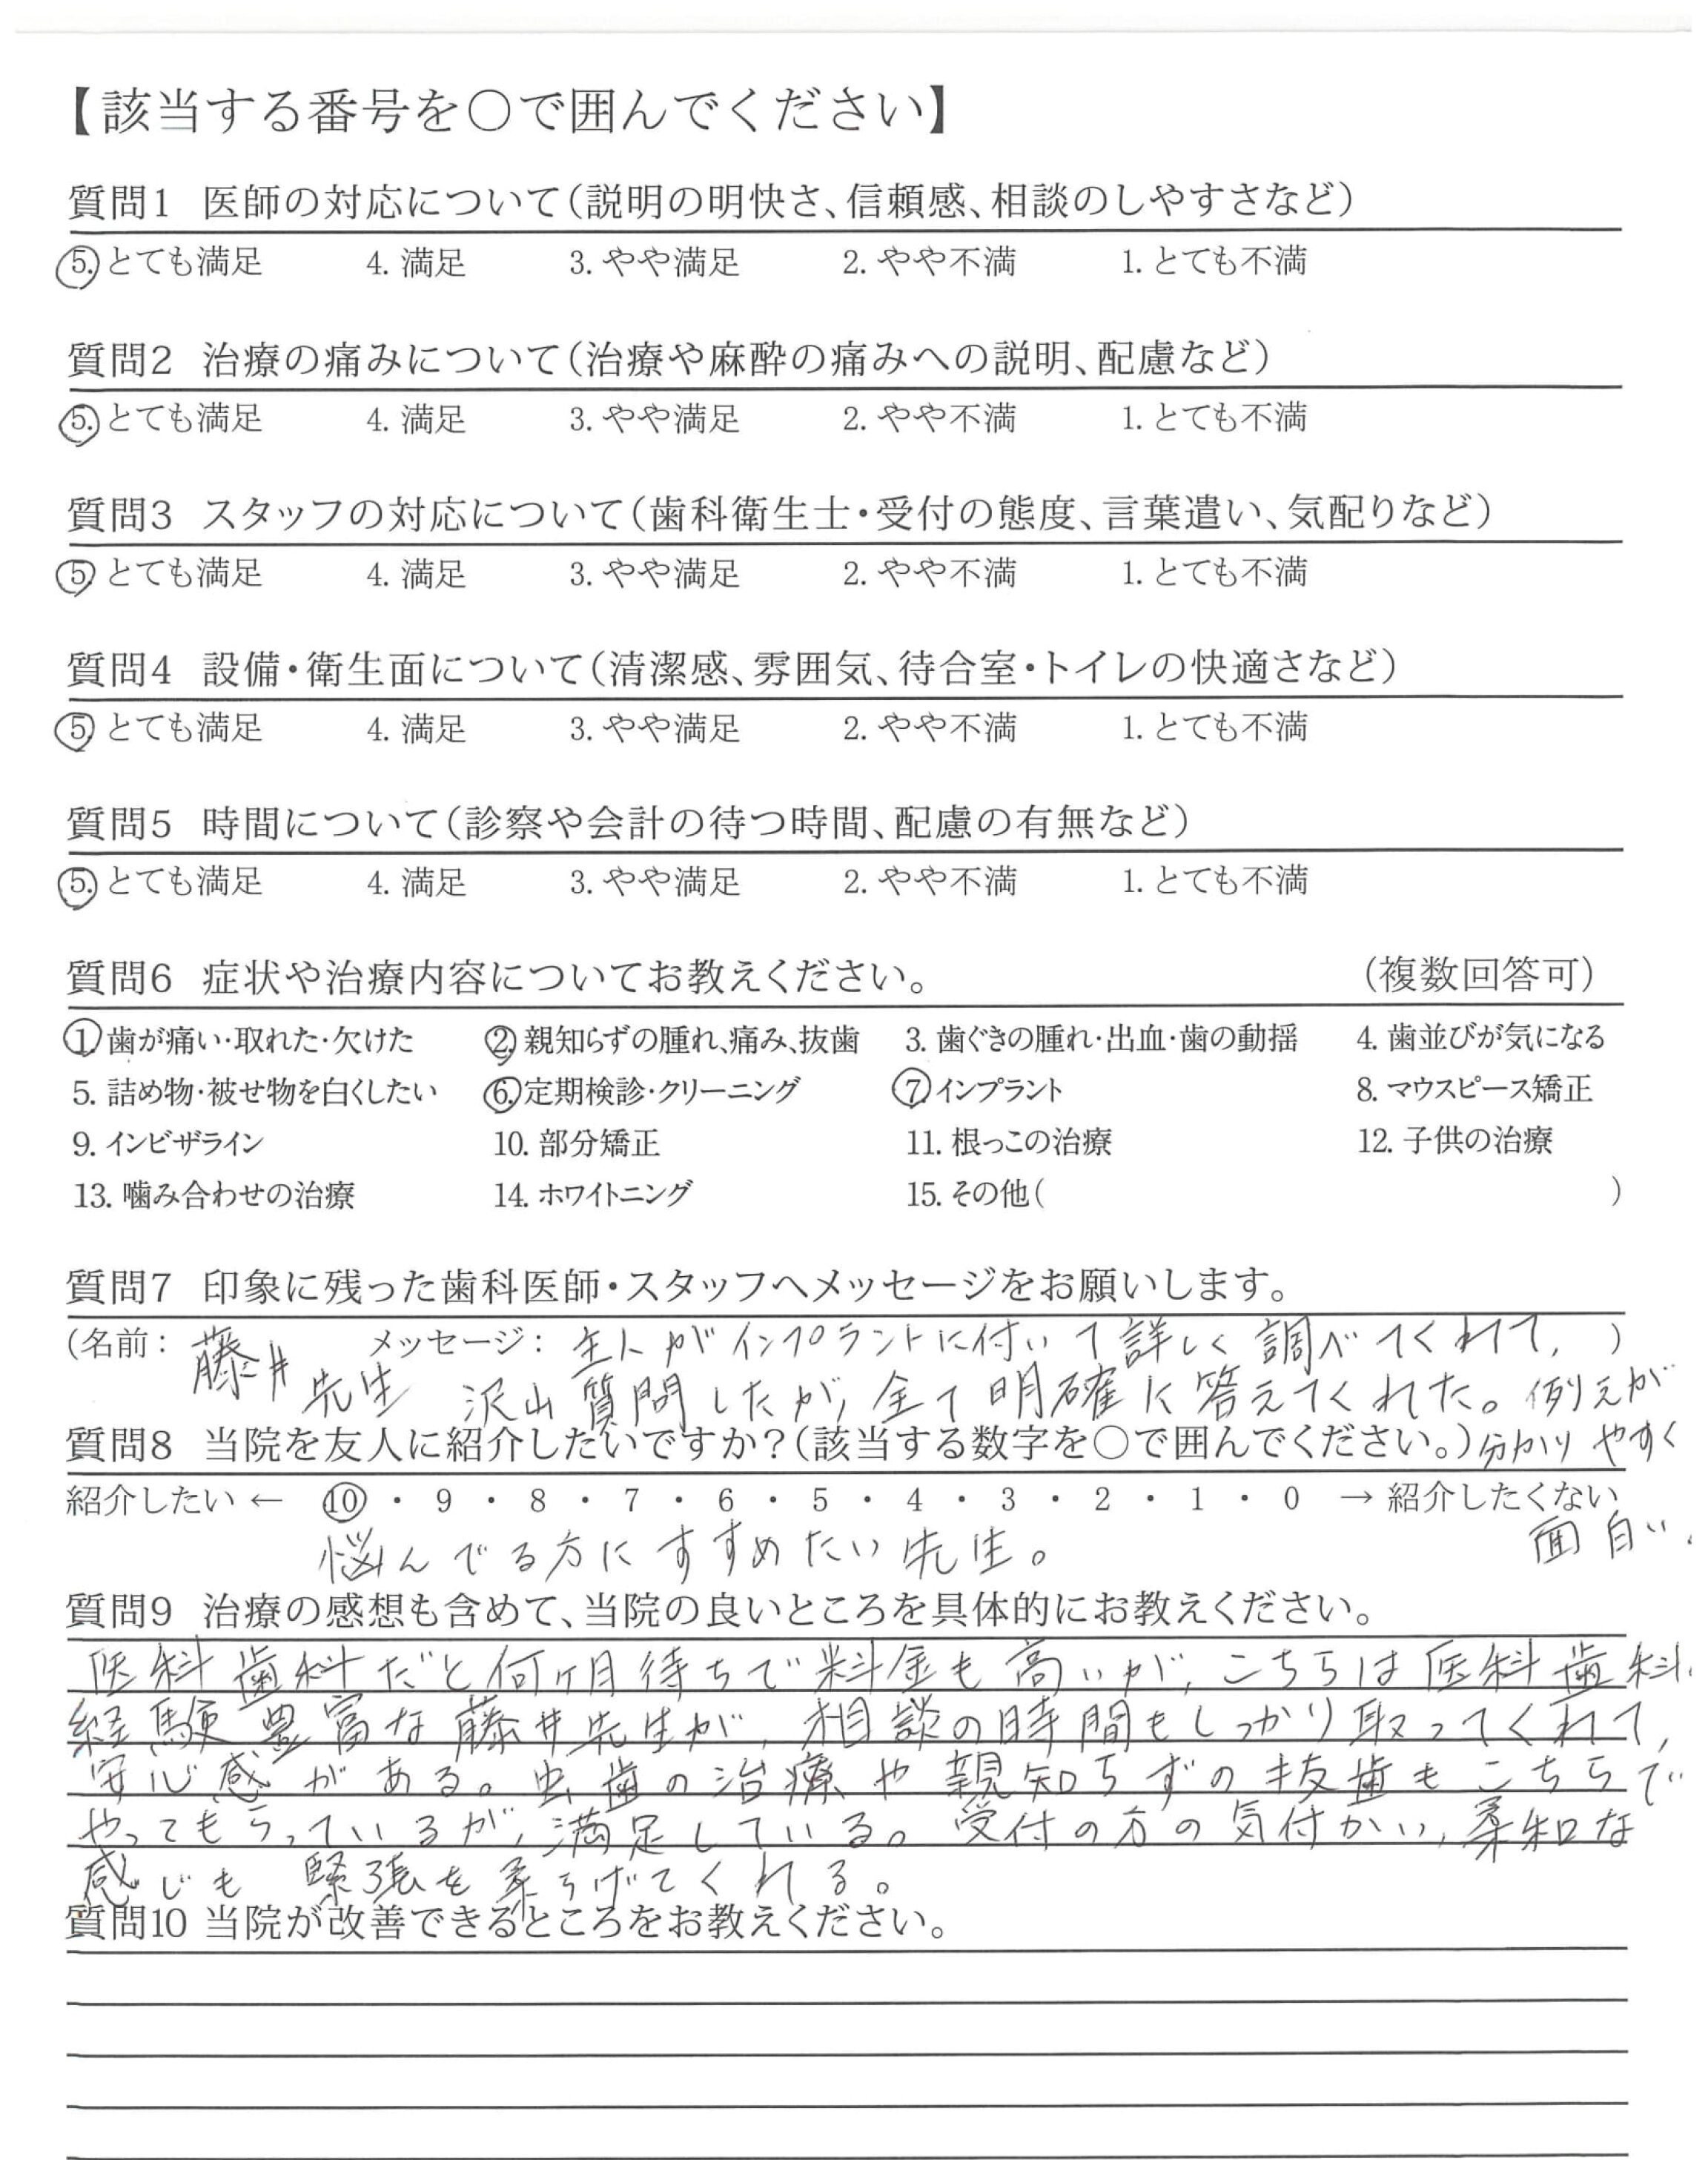 【該当する番号を〇で囲んでください】
質問1 医師の対応について(説明の明快さ、信頼感、相談のしやすさなど)
5. とても満足 4. 満足 3. やや満足 2. やや不満 1. とても不満
質問2 治療の痛みについて(治療や麻酔の痛みへの説明、配慮など)
5. とても満足 4. 満足 3. やや満足 2. やや不満 1. とても不満
質問3 スタッフの対応について(歯科衛生士・受付の態度、言葉遣い、気配りなど)
5. とても満足 4. 満足 3. やや満足 2. やや不満 1. とても不満
質問4 設備・衛生面について(清潔感、雰囲気、待合室・トイレの快適さなど)
5. とても満足 4. 満足 3. やや満足 2. やや不満 1. とても不満
質問5 時間について(診察や会計の待つ時間、配慮の有無など)
5. とても満足 4. 満足 3. やや満足 2. やや不満 1. とても不満
質問6 症状や治療内容についてお教えください。 (複数回答可)
1. 歯が痛い・取れた・欠けた 2. 親知らずの腫れ、痛み、抜歯 3. 歯ぐきの腫れ・出血・歯の動揺 4. 歯並びが気になる
5. 詰め物・被せ物を白くしたい 6. 定期検診・クリーニング 7. インプラント 8. マウスピース矯正
9. インビザライン 10. 部分矯正 11. 根っこの治療 12. 子供の治療
13. 噛み合わせの治療 14. ホワイトニング 15. その他( )
質問7 印象に残った歯科医師・スタッフへメッセージをお願いします。
(名前: 藤井先生 メッセージ: 主人がインプラントに付いて詳しく調べてくれて, )
沢山質問したが, 全て明確に答えてくれた。例えが
分かりやすく
面白い。
質問8 当院を友人に紹介したいですか?(該当する数字を〇で囲んでください。)
紹介したい ← 10 ・ 9 ・ 8 ・ 7 ・ 6 ・ 5 ・ 4 ・ 3 ・ 2 ・ 1 ・ 0 → 紹介したくない
悩んでる方にすすめたい先生。
質問9 治療の感想も含めて、当院の良いところを具体的にお教えください。
医科歯科だと何ヶ月待ちで料金も高いが, こちらは医科歯科
経験豊富な藤井先生が, 相談の時間もしっかり取ってくれて,
安心感がある。虫歯の治療や親知らずの抜歯もこちらで
やってもらっているが, 満足している。受付の方の気付かい, 柔和な
感じも緊張を柔らげてくれる。
質問10 当院が改善できるところをお教えください。